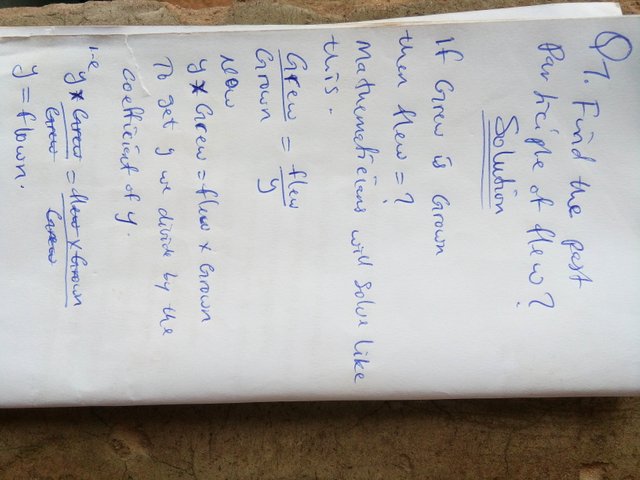 Q7. Find the past
Participle of flew?
Solution
If Grew is Grown
then flew = ?
Mathematicians will solve like
this.
Grew = flew
Grown y
Now
y x Grew = flew x Grown
To get y we divide by the
coefficient of y.
i.e y x Grew = flew x Grown
Grew Grew
y = flown.